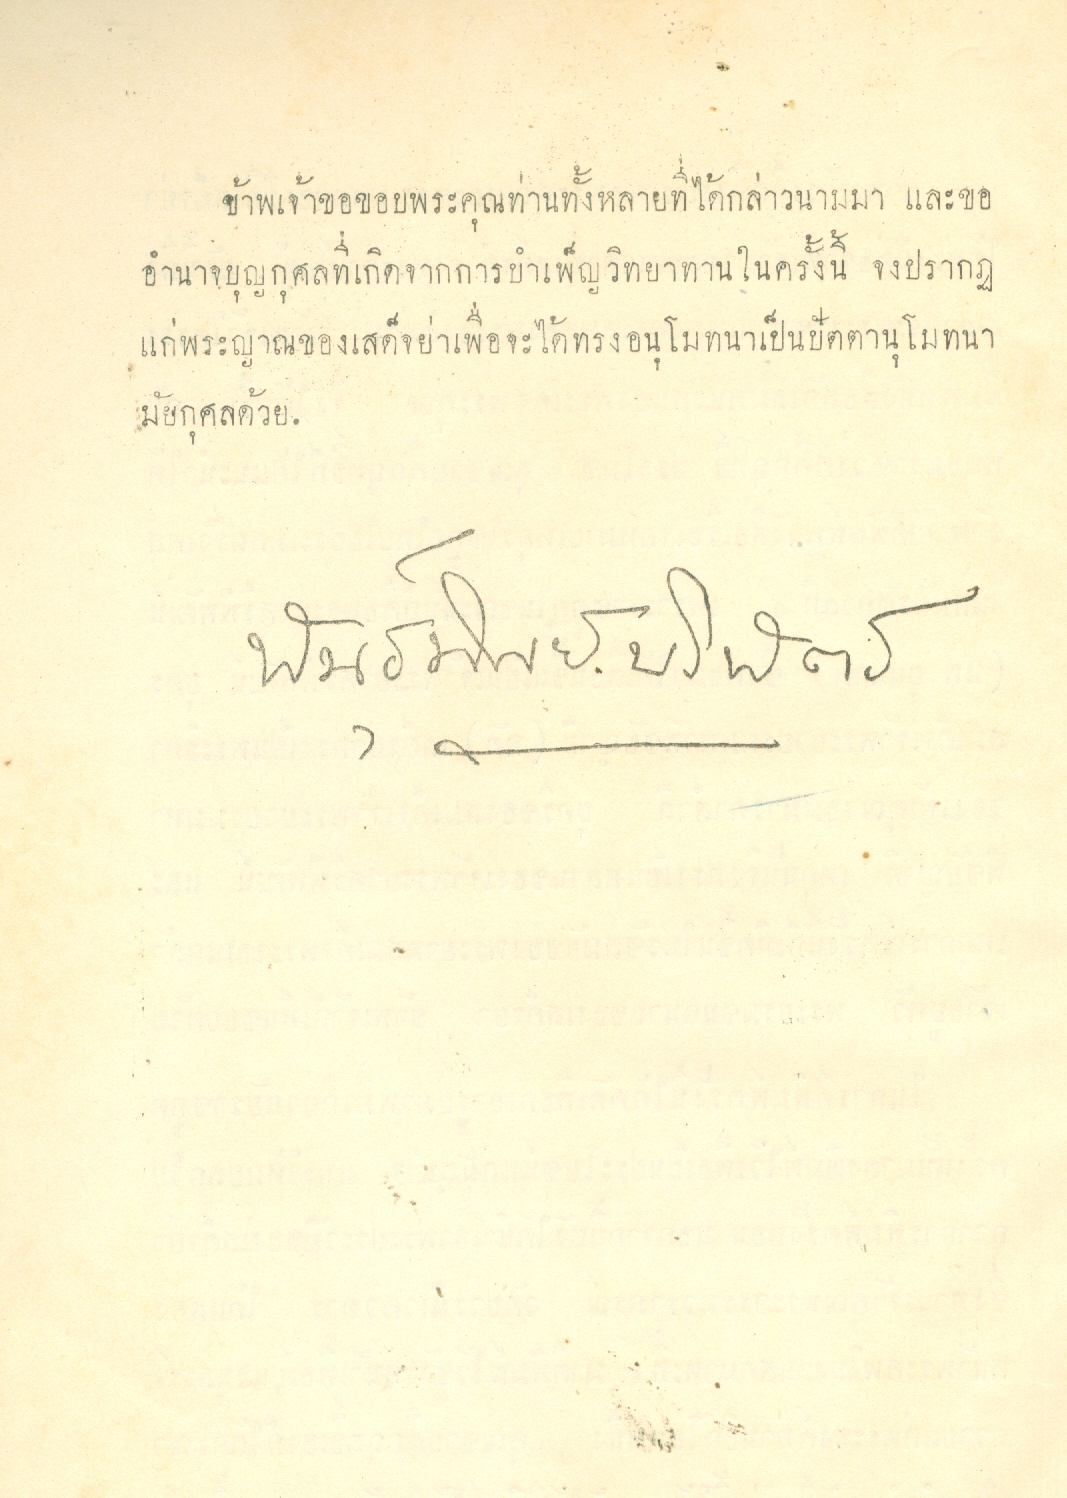 ข้าพเจ้าขอขอบพระคุณท่านทั้งหลายที่ได้กล่าวนามมา และขอ
อำนาจบุญกุศลที่เกิดจากการบำเพ็ญวิทยาทานในครั้งนี้ จงปรากฏ
แก่พระญาณของเสด็จย่าเพื่อจะได้ทรงอนุโมทนาเป็นปัตตานุโมทนา
มัยกุศลด้วย.
พันธุ์ทิพย์ บริพัตร